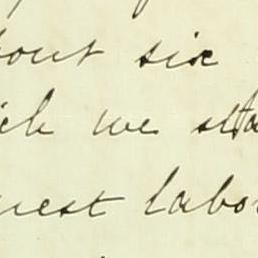 bout six
ich we sta
uest labo